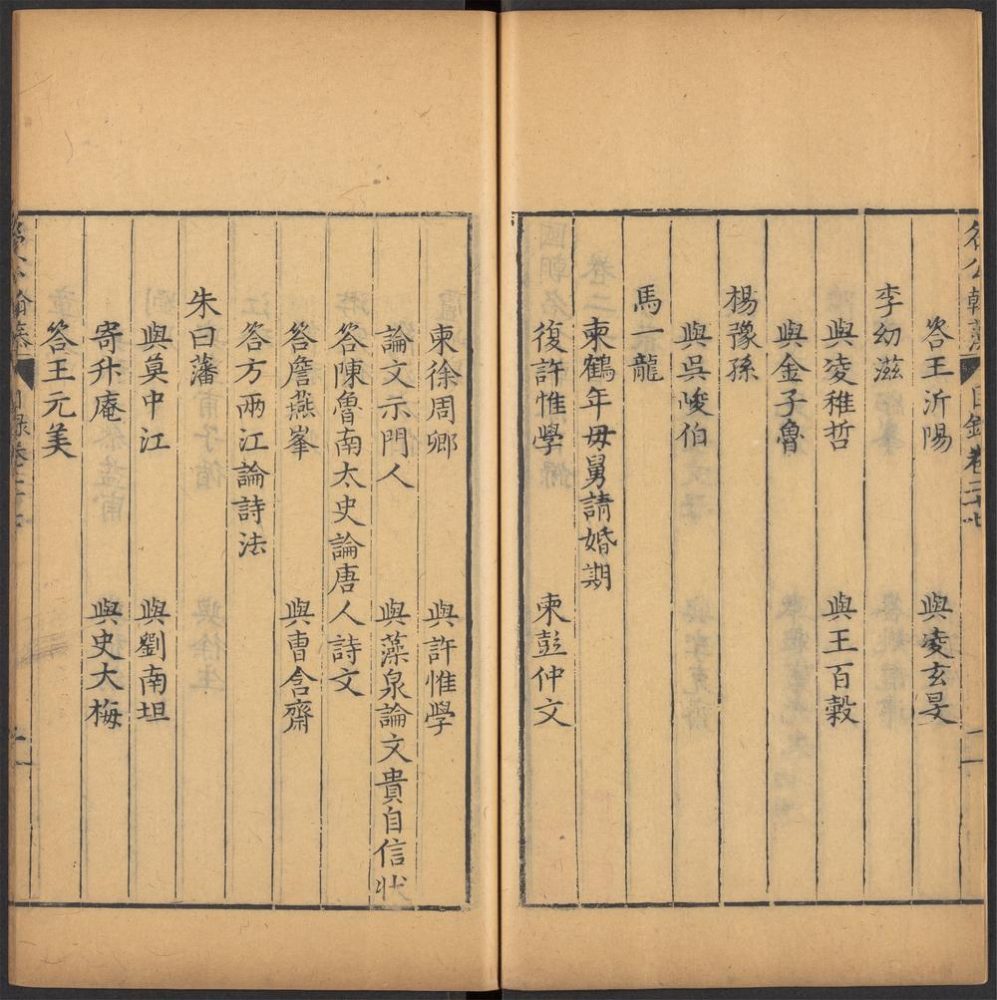 名公翰藻 目錄卷二十七 二
答王沂陽 與凌玄旻
李幼滋
與凌稚哲 與王百穀
與金子魯
楊豫孫
與吳峻伯
馬一龍
柬鶴年母舅請婚期
復許惟學 柬彭仲文
柬徐周鄉 與許惟學
論文示門人 與藻泉論文貴自信狀
答陳魯南太史論唐人詩文
答詹燕峯 與曹含齋
答方兩江論詩法
朱曰藩
與莫中江 與劉南坦
寄升庵 與史大梅
答王元美